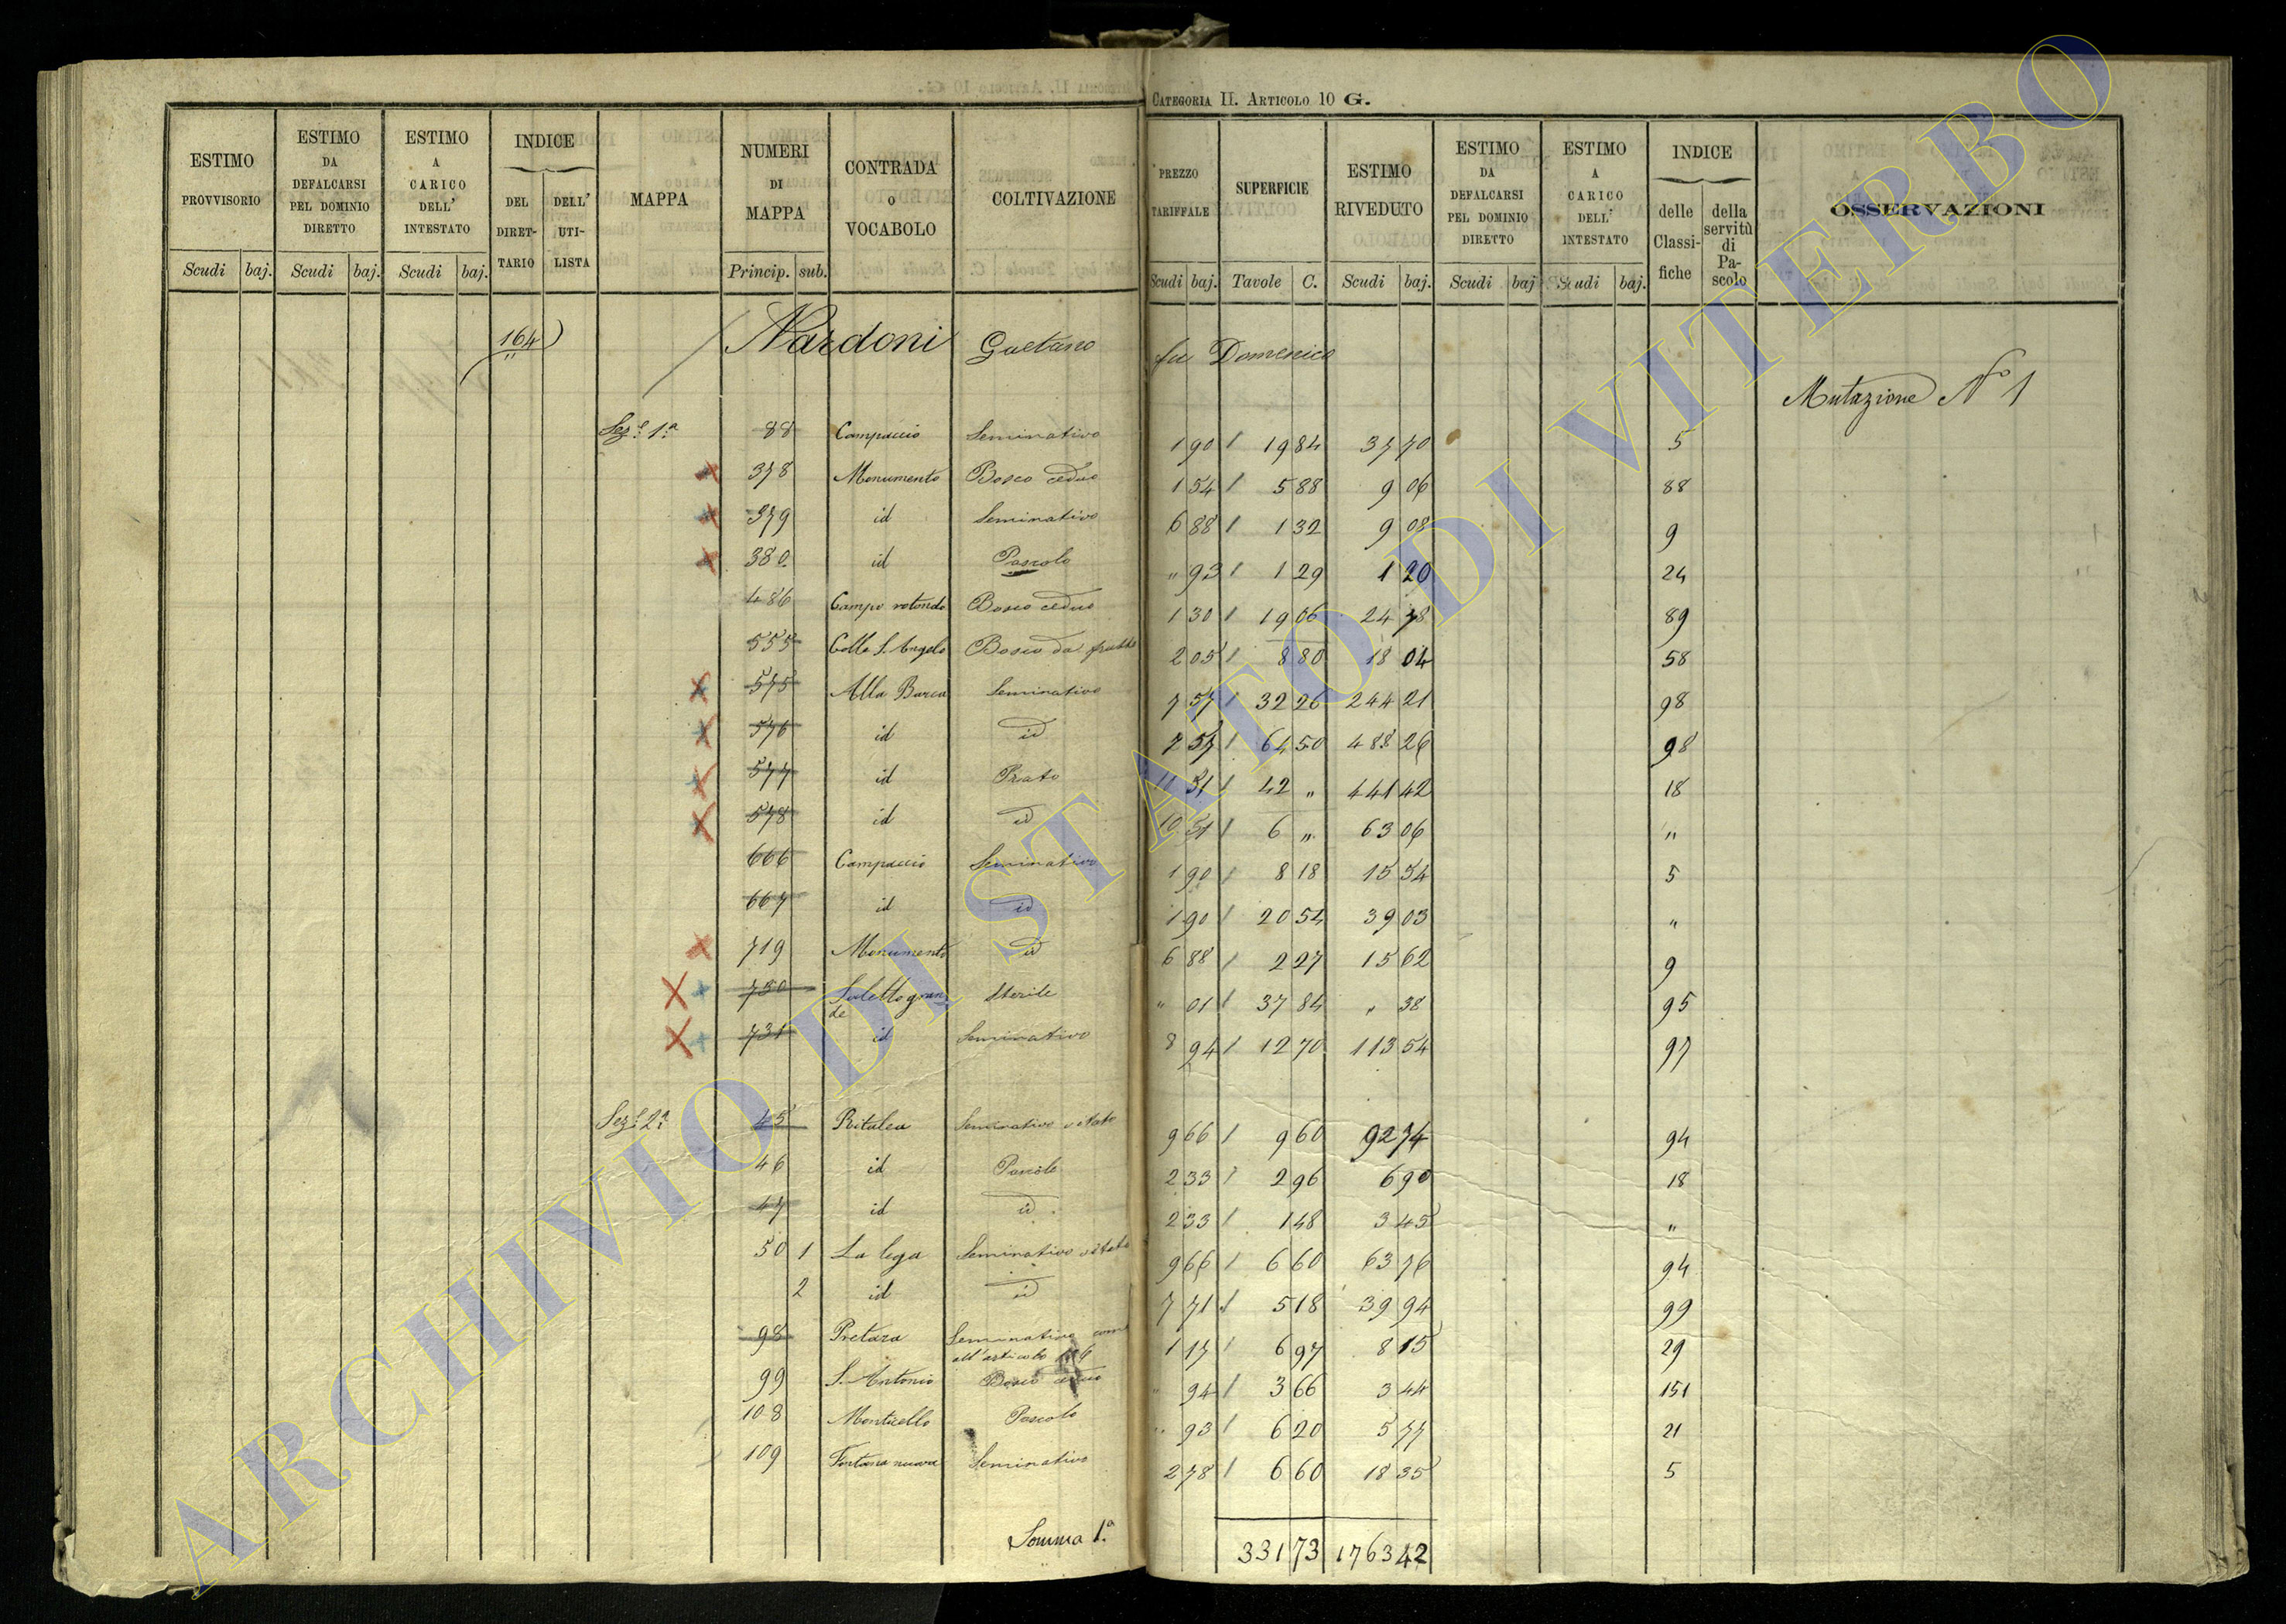 CATEGORIA II. ARTICOLO 10 G.
ESTIMO PROVVISORIO Scudi baj.
ESTIMO DA DEFALCARSI PEL DOMINIO DIRETTO Scudi baj.
ESTIMO A CARICO DELL' INTESTATO Scudi baj.
INDICE DEL DIRETTARIO DELL' UTILISTA
MAPPA
NUMERI DI MAPPA Princip. sub.
CONTRADA O VOCABOLO
COLTIVAZIONE
PREZZO TARIFFALE Scudi baj.
SUPERFICIE Tavole C.
ESTIMO RIVEDUTO Scudi baj.
ESTIMO DA DEFALCARSI PEL DOMINIO DIRETTO Scudi baj
ESTIMO A CARICO DELL' INTESTATO Scudi baj.
INDICE delle Classifiche della servitù di Pascolo
OSSERVAZIONI
164 Nardoni Gaetano fu Domenico
Mutazione N° 1
Sez.e 1.a 88 Campaccio Seminativo 1 90 19 84 37 70 5
378 Monumento Bosco ceduo 1 54 5 88 9 06 88
379 id Seminativo 6 88 1 32 9 08 9
380 id Pascolo " 93 1 29 1 20 24
486 Campo rotondo Bosco ceduo 1 30 19 06 24 78 89
555 Colle S. Angelo Bosco da frutto 2 05 8 80 18 04 58
575 Alla Barca Seminativo 7 57 32 26 244 21 98
576 id id 7 57 64 50 488 26 98
577 id Prato 42 " 441 42 18
578 id id 10 51 6 " 63 06 "
666 Campaccio Seminativo 1 90 8 18 15 54 5
667 id id 1 90 20 54 39 03 "
719 Monumento id 6 88 2 27 15 62 9
730 grande Sterile " 01 37 84 " 38 95
731 id Seminativo 8 94 12 70 113 54 97
Sez.e 2.a 45 Ritalea Seminativo vitato 9 66 9 60 92 74 94
46 id Pascolo 2 33 2 96 6 90 18
47 id id 2 33 1 48 3 45 "
50 1 La lega Seminativo vitato 9 66 6 60 63 76 94
2 id id 7 71 5 18 39 94 99
98 Pretara Seminativo com 1 17 6 97 8 15 29
all'articolo
99 S. Antonio Bosco ceduo " 94 3 66 3 44 151
108 Monticello Pascolo " 93 6 20 5 77 21
109 Fontana nuova Seminativo 2 78 6 60 18 35 5
Somma 1.a 331 73 1763 42
ARCHIVIO DI STATO DI VITERBO